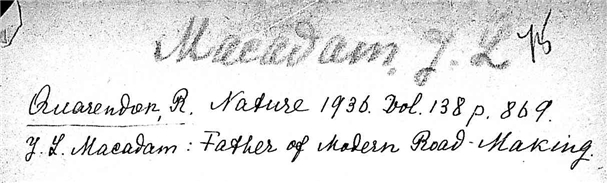 Macadam, J. L
Quarendon, R. Nature 1936. Vol. 138 p. 869.
J. L. Macadam: Father of Modern Road-Making.